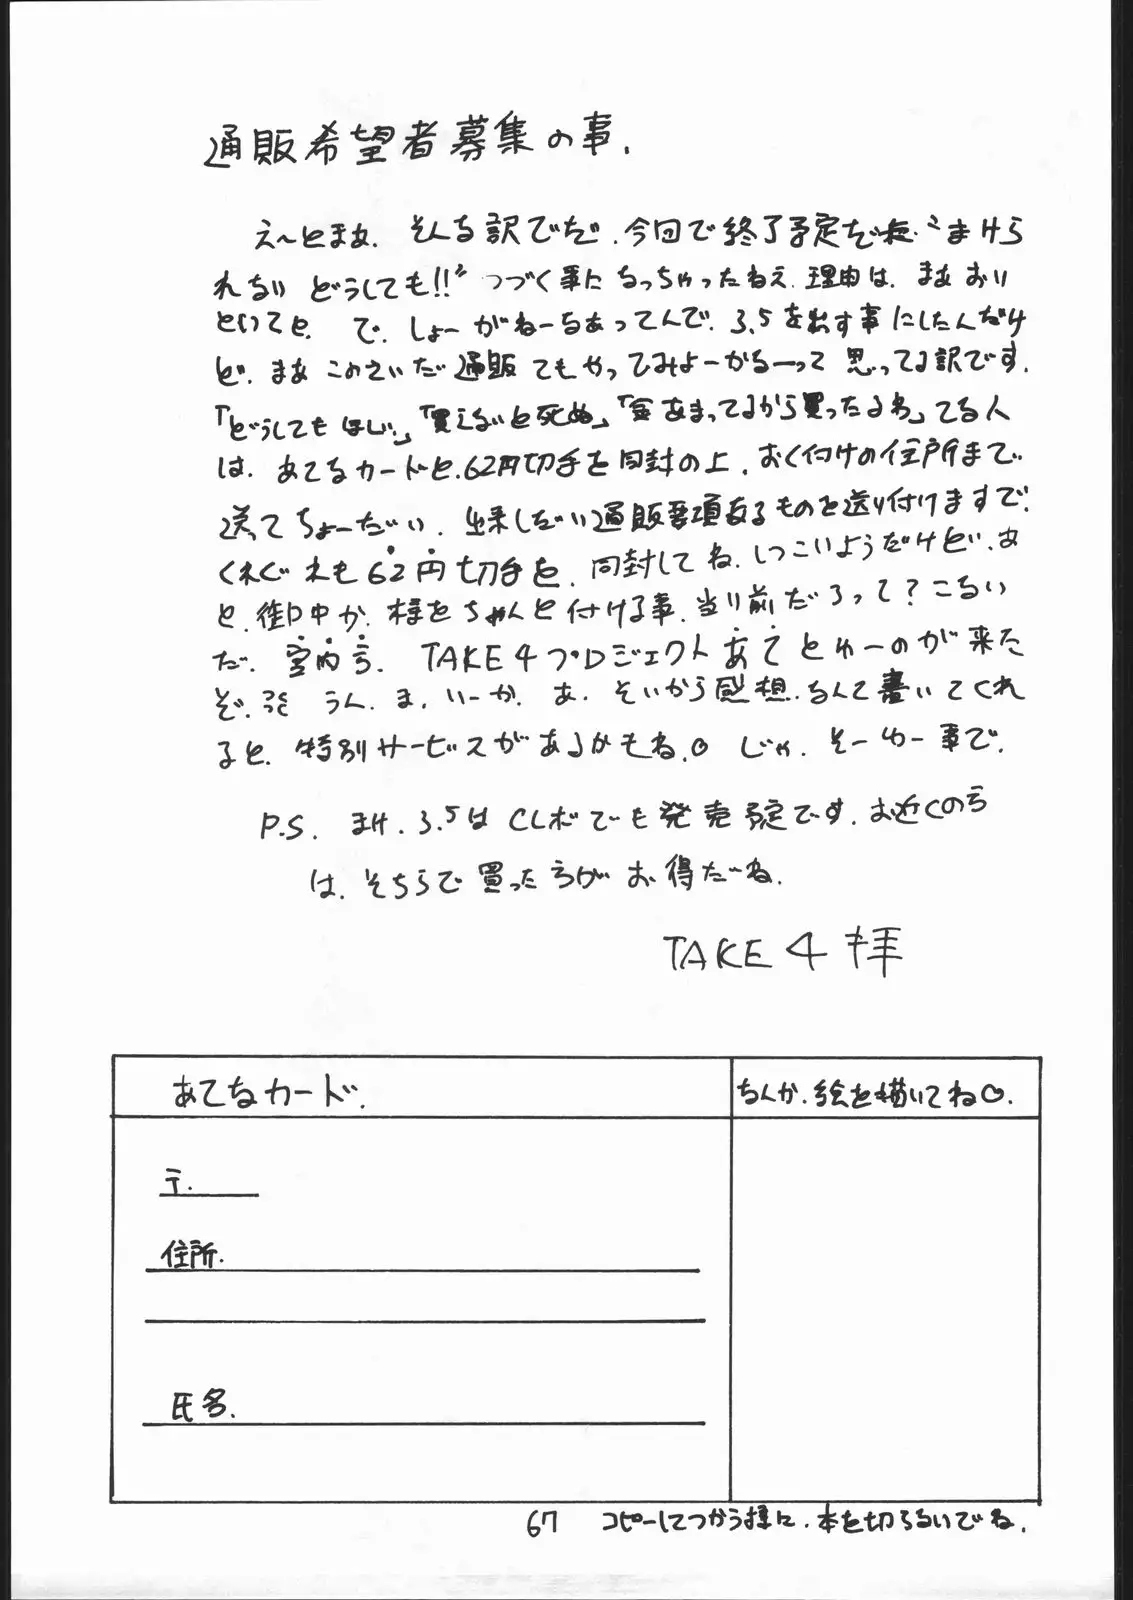 通販希望者募集の事.
え〜とまぁ. そんな訳でだ. 今回で終了予定だった "まけら
れない どうしても!!" つづく事になっちゃったねえ. 理由は. まあ おい
といてと. で. しょーがねーなあってんで. 3.5を出す事にしたんだけ
ど. まあ このさいだ 通販でもやってみよーかなーって 思ってる訳です.
「どうしてもほしい」「買えないと死ぬ」「金あまってるから買ったるわ」てな人
は. あてなカードと. 62円切手を同封の上. おく付けの住所まで.
送てちょーだい. 出来しだい通販要項なるものを送り付けますで.
くれぐれも62円切手を. 同封してね. しつこいようだけどい. あ
と. 御中か. 様をちゃんと付ける事. 当り前だろって? こないだ
だ. 宮内方. TAKE4プロジェクトあてとゆーのが来た
ぞ. うん. ま. いーか. あ. そいから感想. なんて書いてくれ
ると. 特別サービスがあるかもね.♡ じゃ. そーゆー事で.
P.S. まけ. 3.5はCLボでも発売予定です. お近くの方
は. そちらで買った方が お得だーね.
TAKE4拝
あてなカード.
なんか. 絵を描いてね♡.
〒.
住所.
氏名.
67 コピーしてつかう様に. 本を切るないでね.